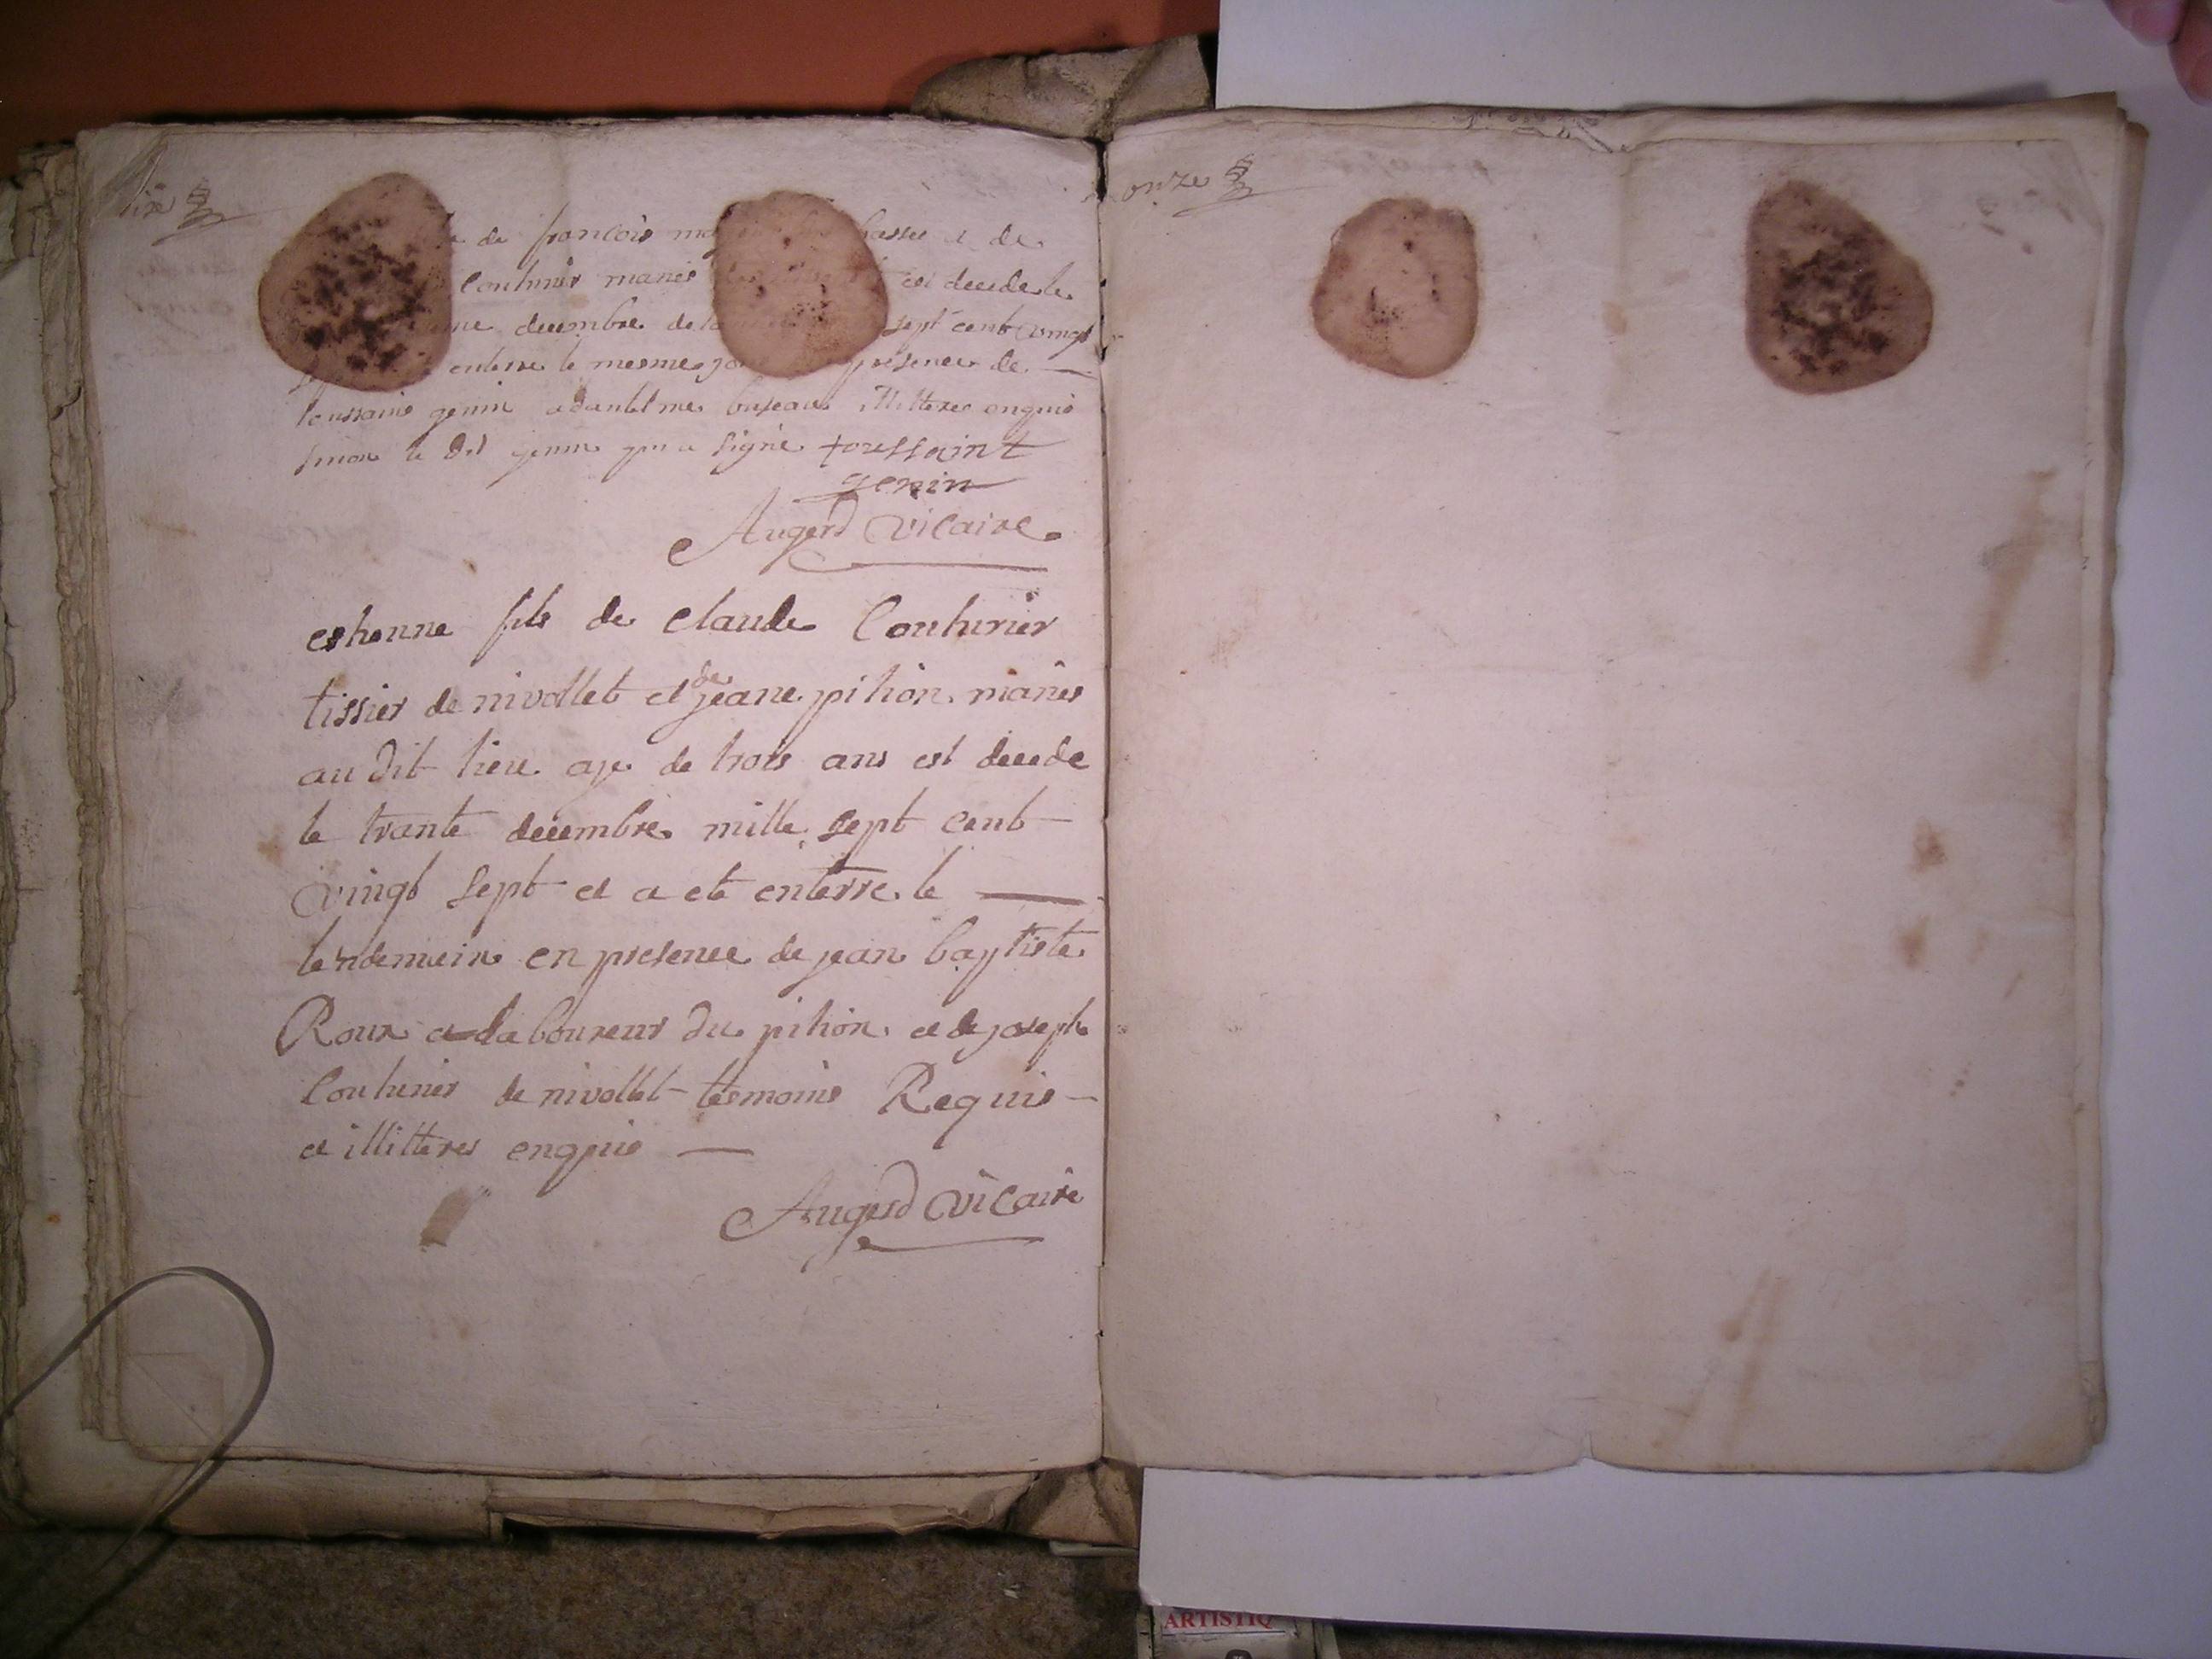 dix
de françois basse et de
Couturier mariés est decede le
decembre de sept cent vingt
enterre le mesme jour presence de
toussaint genin illitteres enquis
sinon le dit genin qui a signé toussaint
genin
Augerd vicaire
estienne fils de claude Couturier
tissier de nivollet et de jeane pition mariés
au dit lieu age de trois ans est decede
le trante decembre mille sept cent
vingt sept et a ete enterre le
lendemein en presence de jean baptiste
Roux laboureur du pition et de joseph
Couturier de nivollet tesmoins Requis
et illitteres enquis
Augerd vicaire
onze
ARTISTIQ